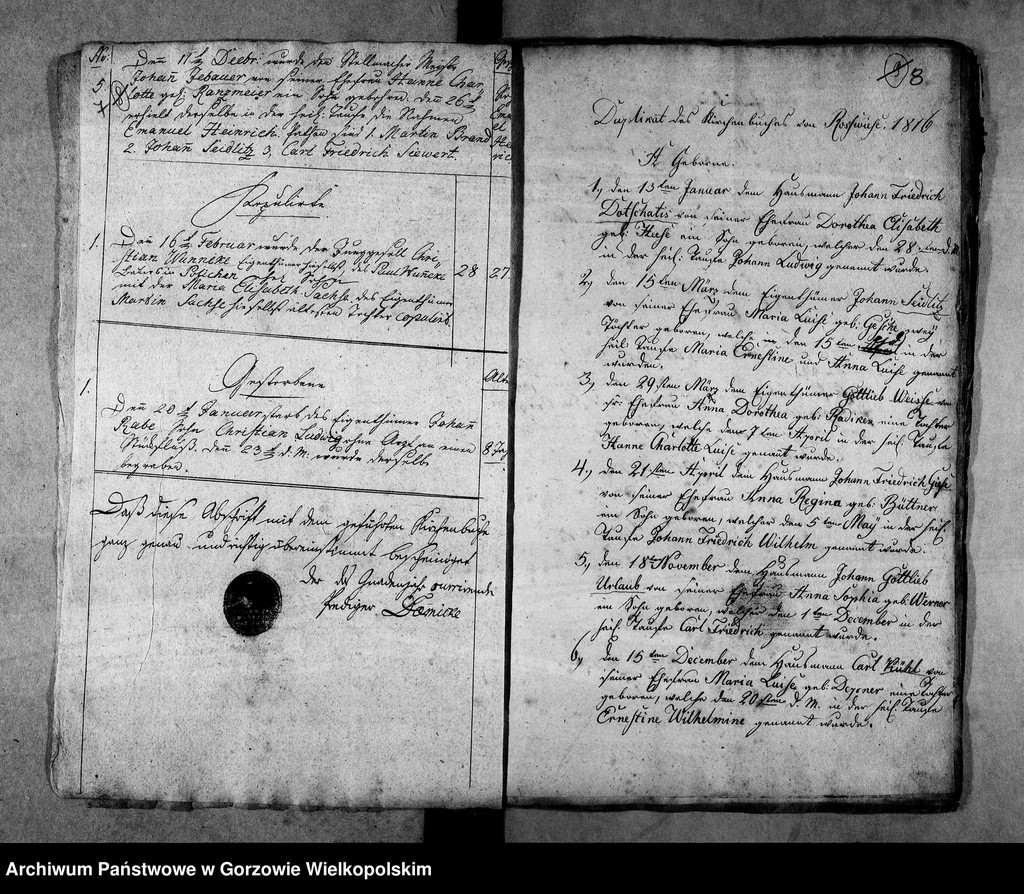 No.
5
Denn 11t Decbr: wurde dem Stellmacher Meister
Johañ Gebauer von seiner Ehefrau Hanne Char
lotte geb: Ranzmeier ein Sohn gebohren. Den 26t
erhielt derselbe in der heil: Taufe die Nahmen
Emanuel Heinrich. Pathen sind 1. Martin Brand
2. Johañ Seidlitz 3, Carl Friedrich Siewert.
Kopulirte
1.
Denn 16t Februar wurde der Junggesell Chri
stian Wunneke Eigenthümer hieselbst, des Paul Wuneke
in Pollichen Sohn
mit der Maria Elisabeth Sachse, des Eigenthümer
Martin Sachse hieselbst ältesten Tochter copulirt
28
27
Gestorbene
Alt
1.
Denn 20t Januer starb des Eigenthümer Johañ
Rabe Sohn Christian Ludwig ohne Arzt, an einen
Stickfluß. Denn 23t d. M. wurde derselbe
begraben.
8 Ja
Daß diese Abschrift mit dem geführten Kirchenbuche
ganz genau und richtig übereinstimmt bescheiniget
der das Gnadenjahr
Prediger Doemicke
8
Duplikat des Kirchenbuches von Roßwiese. 1816
A. Geborne.
1, den 13ten Januar dem Hausmann Johann Friedrich
Dotschatis von seiner Ehefrau Dorothea Elisabeth
geb: Haese ein Sohn geboren, welcher den 28sten d. M.
in der heil: Taufe Johann Ludwig genannt wurde.
2, den 15ten März dem Eigenthümer Johann Seidlitz
von seiner Ehefrau Maria Luise geb: Geschke zwey
Töchter geboren, welche den 15ten in der
heil: Taufe Maria Ernestine und Anna Luise genannt
wurden.
3, den 29sten März dem Eigenthümer Gottlieb Weisse von
sr: Ehefrau Anna Dorothea geb: Radicken eine Tochter
geboren, welche den 7ten April in der heil: Taufe
Hanne Charlotte Luise genannt wurde.
4, den 21sten April dem Hausmann Johann Friedrich
von seiner Ehefrau Anna Regina geb: Büttner
ein Sohn geboren, welcher den 5ten May in der heil:
Taufe Johann Friedrich Wilhelm genannt wurde.
5, den 18t November dem Hausmann Johann Gottlieb
Urlaub von seiner Ehefrau Anna Sophia geb: Werner
ein Sohn geboren, welcher den 1ten December in der
heil: Taufe Carl Friedrich genannt wurde.
6, den 15ten December dem Hausmann Carl Kühl von
seiner Ehefrau Maria Luise geb: Depner eine Tochter
geboren, welche den 20sten d. M. in der heil: Taufe
Ernestine Wilhelmine genannt wurde.
Archiwum Państwowe w Gorzowie Wielkopolskim